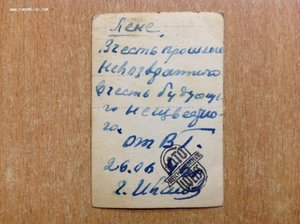 Лене.
В честь прошлого
невозвратного
в честь будуще-
го неизвестно-
го. от В.Г.
26.06
г.